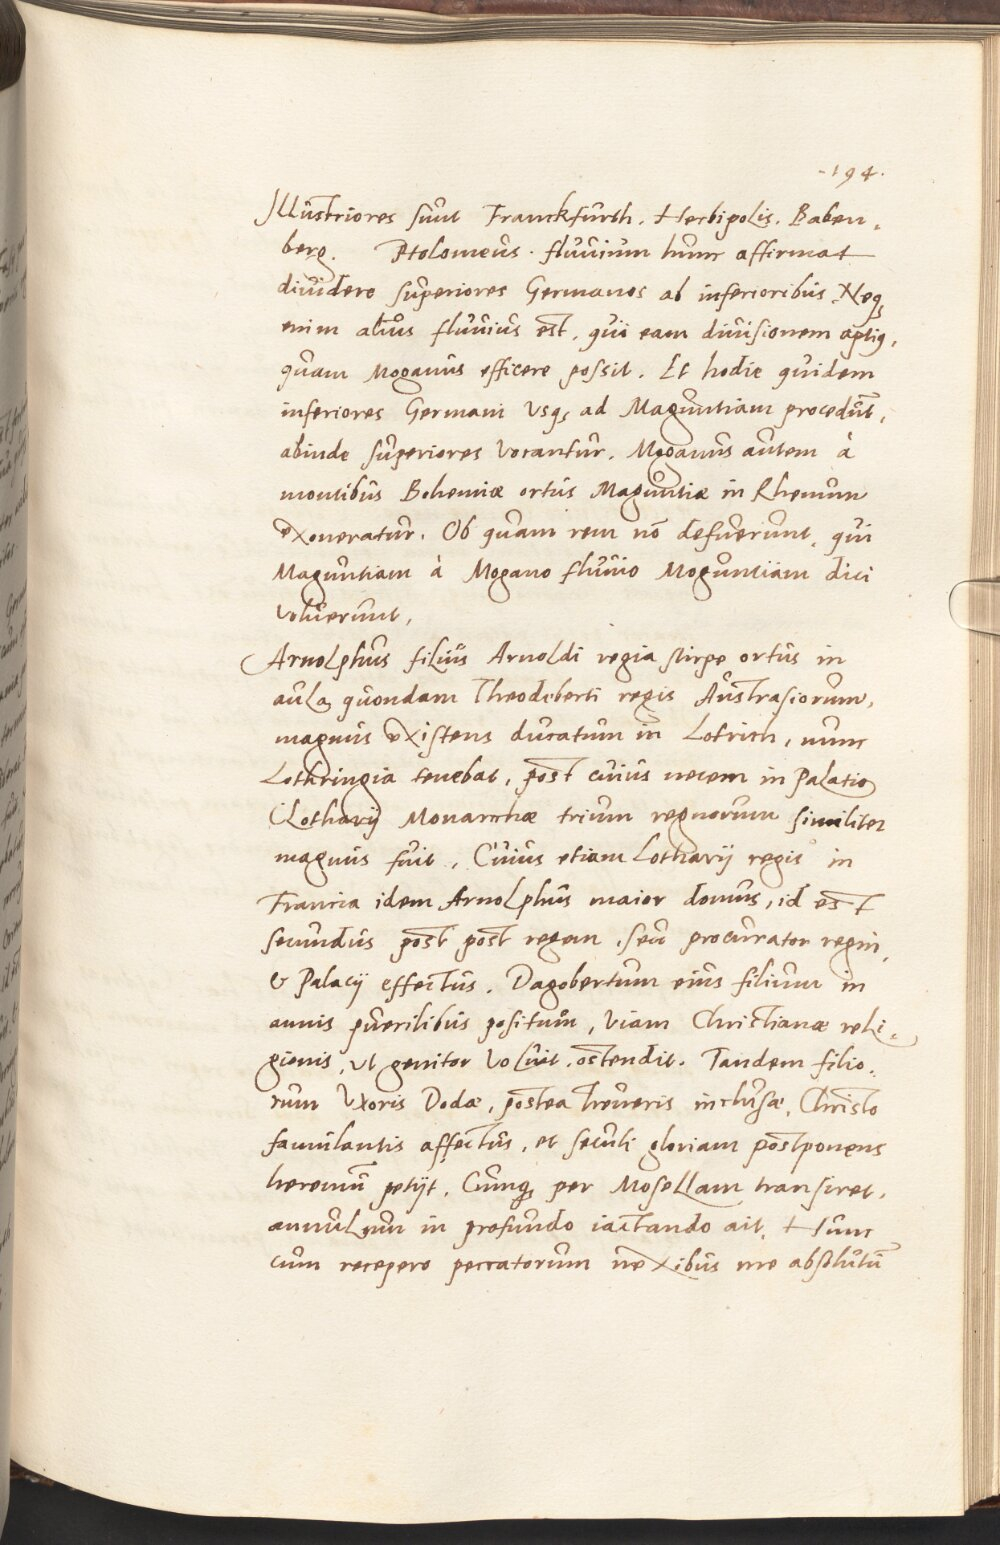 -194.
Illustriores sunt Franckfurth. Herbipolis. Baben-
berg. Ptolomeus. fluuium hunc affirmat
diuidere superiores Germanos ab inferioribus. Neq3
enim alius fluuius est, qui eam diuisionem aptiq,
quam Moganus efficere possit. Et hodie quidem
inferiores Germani vsq3 ad Maguntiam procedūt,
abinde superiores vocantur. Moganus autem à
montibus Bohemiæ ortus Maguntiæ in Rhenum
exoneratur. Ob quam rem nō defuerunt, qui
Maguntiam à Mogano fluuio Moguntiam dici
voluerunt,
Arnolphus filius Arnoldi regia stirpe ortus in
aula quondam Theodeberti regis Austrasiorum,
magnus existens ducatum in Lotrich, nunc
Lothringia tenebat, post cuius necem in Palatio
Clotharij Monarchæ trium regnorum similiter
magnus fuit, Cuius etiam Lotharij regis in
Francia idem Arnolphus maior domus, id est
secundus post post regem, seu procurator regni,
& Palacij effectus. Dagobertum eius filium in
annis puerilibus positum, viam Christianæ reli-
gionis, ut genitor voluit, ostendit. Tandem filio-
rum vxoris Dodæ, postea Treueris inclusæ, Christo
famulantis affectus, et seculi gloriam postponens
heremū petijt, Cumq3 per Mosellam transiret,
annulum in profundo iactando ait, Hunc
cum recepero peccatorum nexibus me absolutū